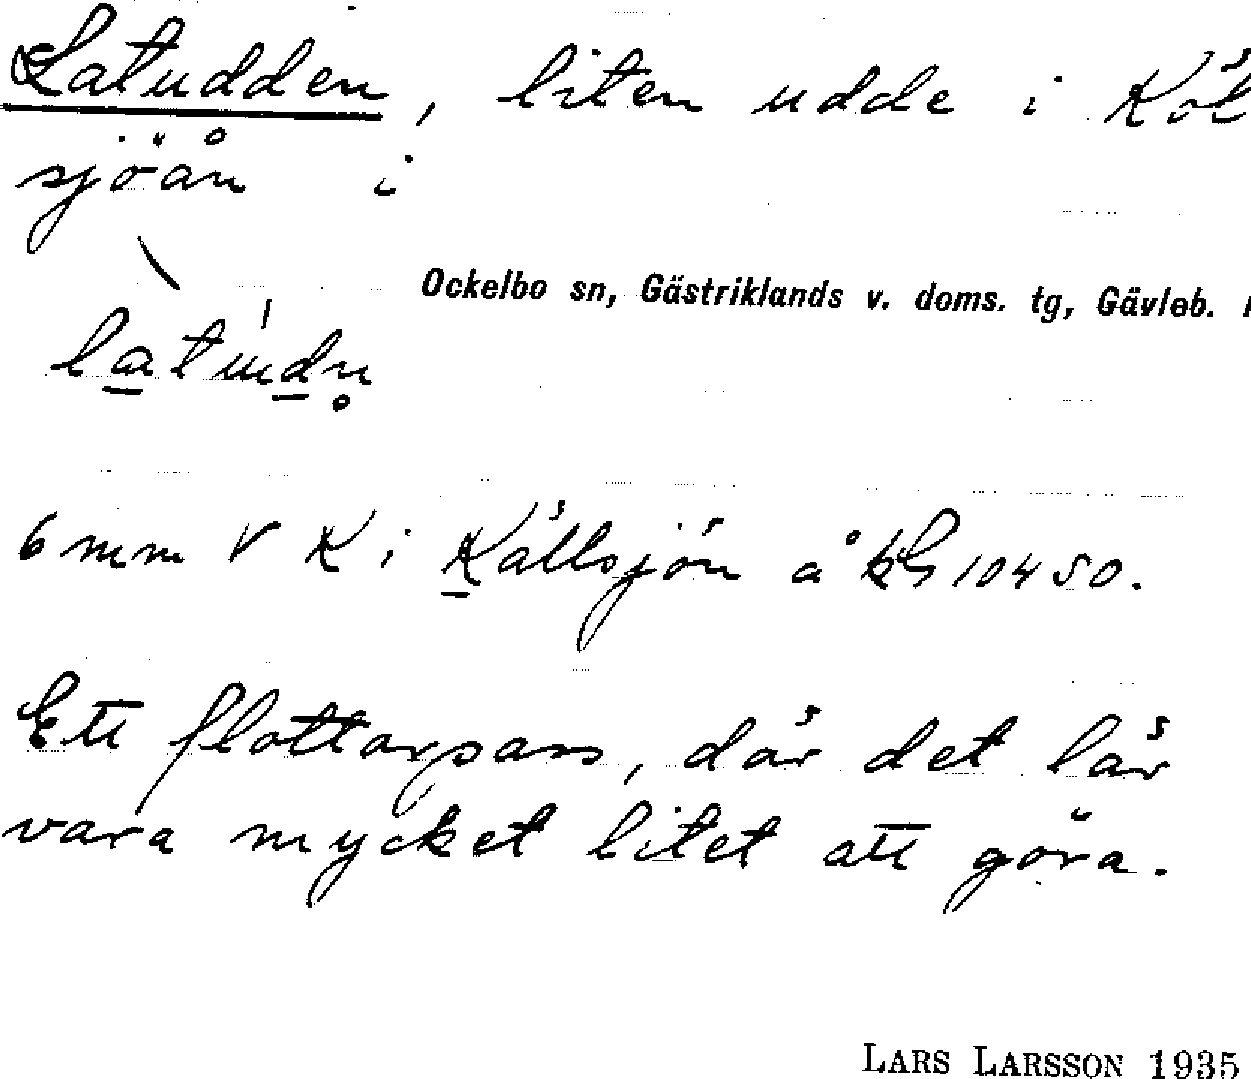 Latudden, liten udde i Köl
sjöån i
Ockelbo sn, Gästriklands v. doms. tg, Gävleb.
6 mm V K i Källsjön å kbl 10450.
Ett flottarpass, där det lär
vara mycket litet att göra.
LARS LARSSON 1935